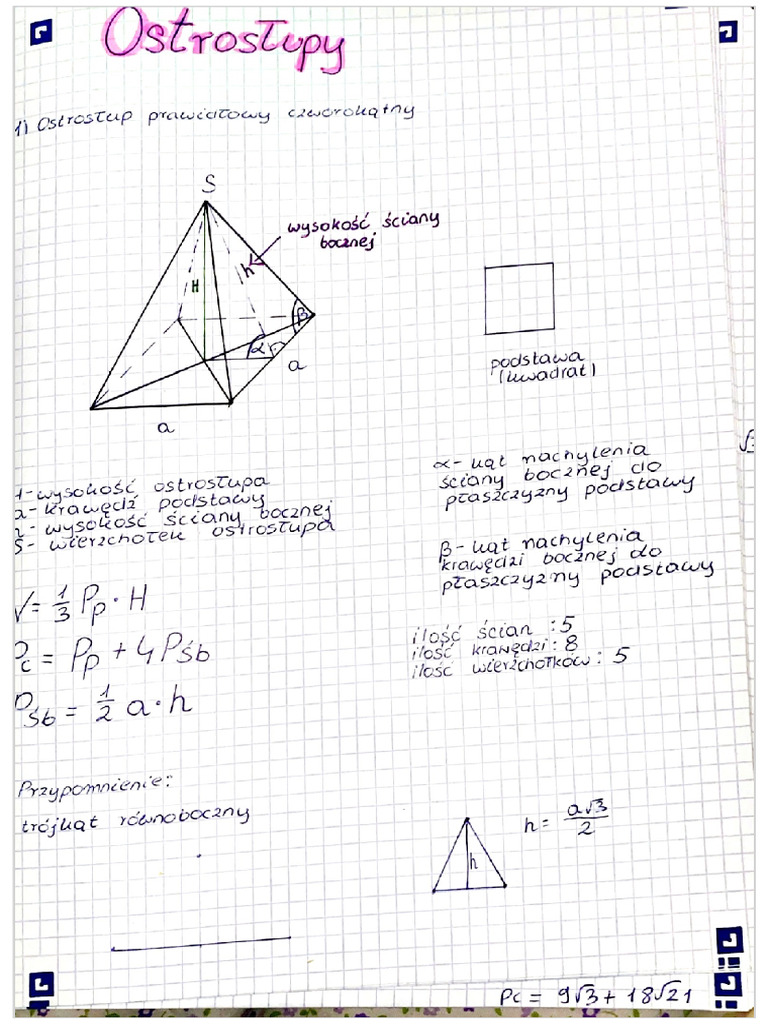 Ostrosłupy
1) Ostrosłup prawidłowy czworokątny
S
wysokość ściany
bocznej
H
h
β
α
a
a
podstawa
(kwadrat)
H-wysokość ostrosłupa
a-krawędź podstawy
h-wysokość ściany bocznej
S- wierzchołek ostrosłupa
α- kąt nachylenia
ściany bocznej do
płaszczyzny podstawy
√3
β- kąt nachylenia
krawędzi bocznej do
płaszczyzny podstawy
V= 1/3 Pp · H
Pc = Pp + 4Pśb
Pśb = 1/2 a·h
ilość ścian : 5
ilość krawędzi: 8
ilość wierzchołków: 5
Przypomnienie:
trójkąt równoboczny
h
h= a√3/2
Pc = 9√3 + 18√21